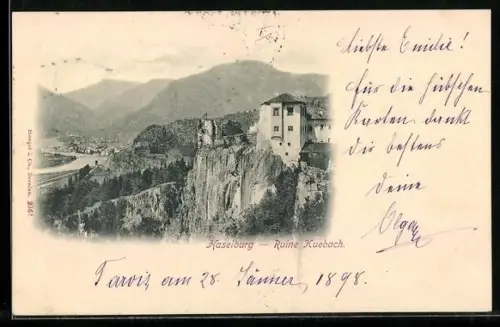 Liebste Emilie!
für die hübschen
Karten dankt
dir bestens
deine
Olga
Stengel & Co., Dresden
Haselburg — Ruine Kuebach.
Tarvis am 28. Jänner 1898.